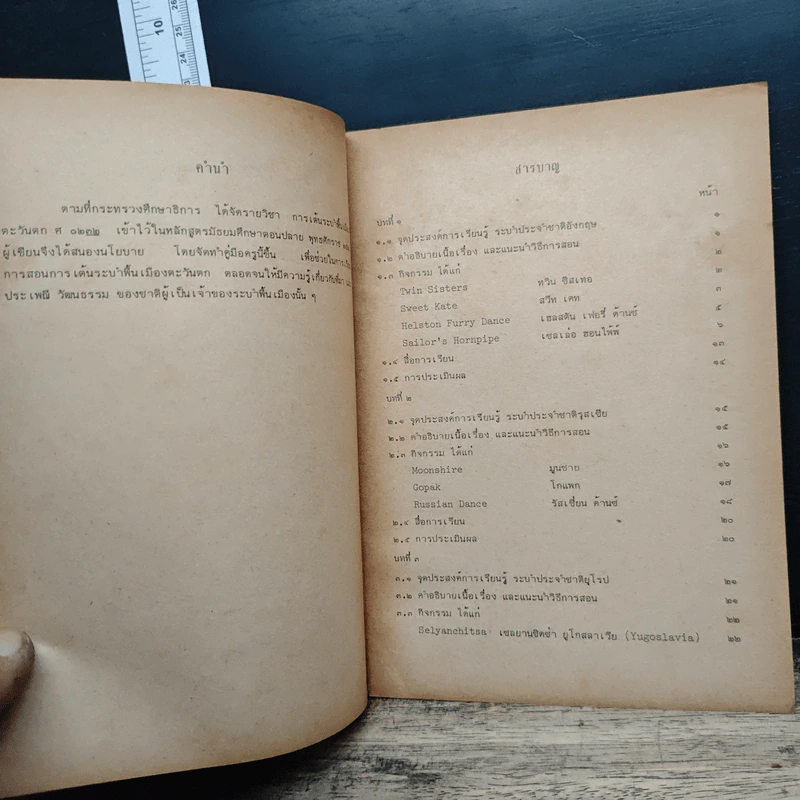 คำนำ
ตามที่กระทรวงศึกษาธิการ ได้จัดรายวิชา การเต้นรำพื้นเมือง
ตะวันตก ศ ๐๒๓๒ เข้าไว้ในหลักสูตรมัธยมศึกษาตอนปลาย พุทธศักราช
ผู้เขียนจึงได้สนองนโยบาย โดยจัดทำคู่มือครูนี้ขึ้น เพื่อช่วยในการ
การสอนการเต้นระบำพื้นเมืองตะวันตก ตลอดจนให้มีความรู้เกี่ยวกับ
ประเพณี วัฒนธรรม ของชาติผู้เป็นเจ้าของระบำพื้นเมืองนั้น ๆ
สารบาญ
หน้า
บทที่ ๑
๑.๑ จุดประสงค์การเรียนรู้ ระบำประจำชาติอังกฤษ ๑
๑.๒ คำอธิบายเนื้อเรื่อง และแนะนำวิธีการสอน ๑
๑.๓ กิจกรรม ได้แก่ ๒
Twin Sisters ทวิน ซิสเทอ ๒
Sweet Kate สวีท เคท ๓
Helston Furry Dance เฮลสตัน เฟอรี่ ด้านซ์ ๕
Sailor's Hornpipe เซลเล่อ ฮอนไพ้พ์ ๖
๑.๔ สื่อการเรียน ๑๓
๑.๕ การประเมินผล ๑๔
บทที่ ๒
๒.๑ จุดประสงค์การเรียนรู้ ระบำประจำชาติรุสเซีย ๑๕
๒.๒ คำอธิบายเนื้อเรื่อง และแนะนำวิธีการสอน ๑๕
๒.๓ กิจกรรม ได้แก่ ๑๖
Moonshire มูนชาย ๑๖
Gopak โกแพก ๑๗
Russian Dance รัสเซี่ยน ด้านซ์ ๑๘
๒.๔ สื่อการเรียน ๒๐
๒.๕ การประเมินผล ๒๐
บทที่ ๓
๓.๑ จุดประสงค์การเรียนรู้ ระบำประจำชาติยุโรป ๒๑
๓.๒ คำอธิบายเนื้อเรื่อง และแนะนำวิธีการสอน ๒๑
๓.๓ กิจกรรม ได้แก่ ๒๒
Selyanchitsa เซลยานชิตซ่า ยูโกสลาเวีย (Yugoslavia) ๒๒
10
26
25
24